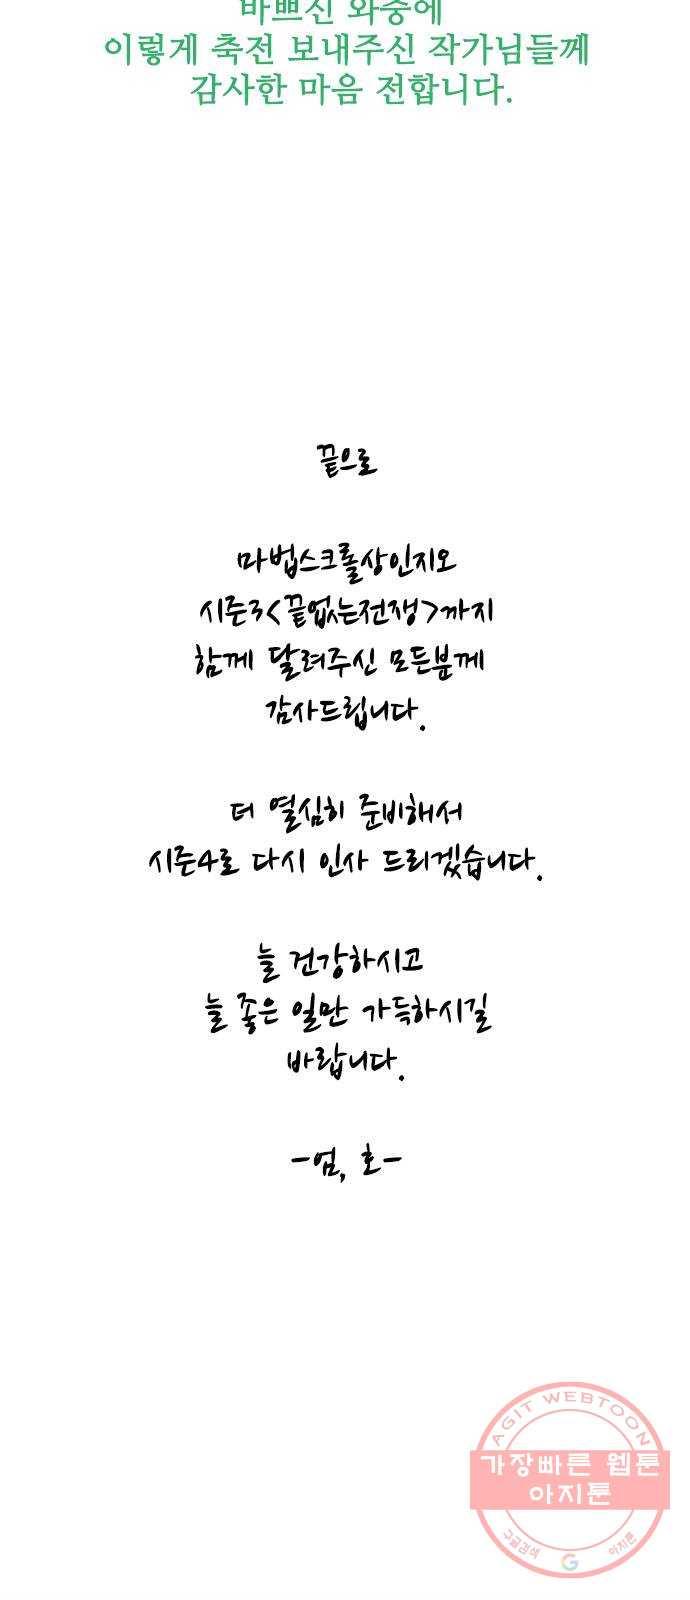 바쁘신 와중에
이렇게 축전 보내주신 작가님들께
감사한 마음 전합니다.
끝으로
마법스크롤상인지오
시즌3<끝없는전쟁>까지
함께 달려주신 모든분께
감사드립니다.
더 열심히 준비해서
시즌4로 다시 인사 드리겠습니다.
늘 건강하시고
늘 좋은 일만 가득하시길
바랍니다.
-엄, 호-
AGIT WEBTOON
가장빠른 웹툰
아지툰
구글검색 G 아지툰